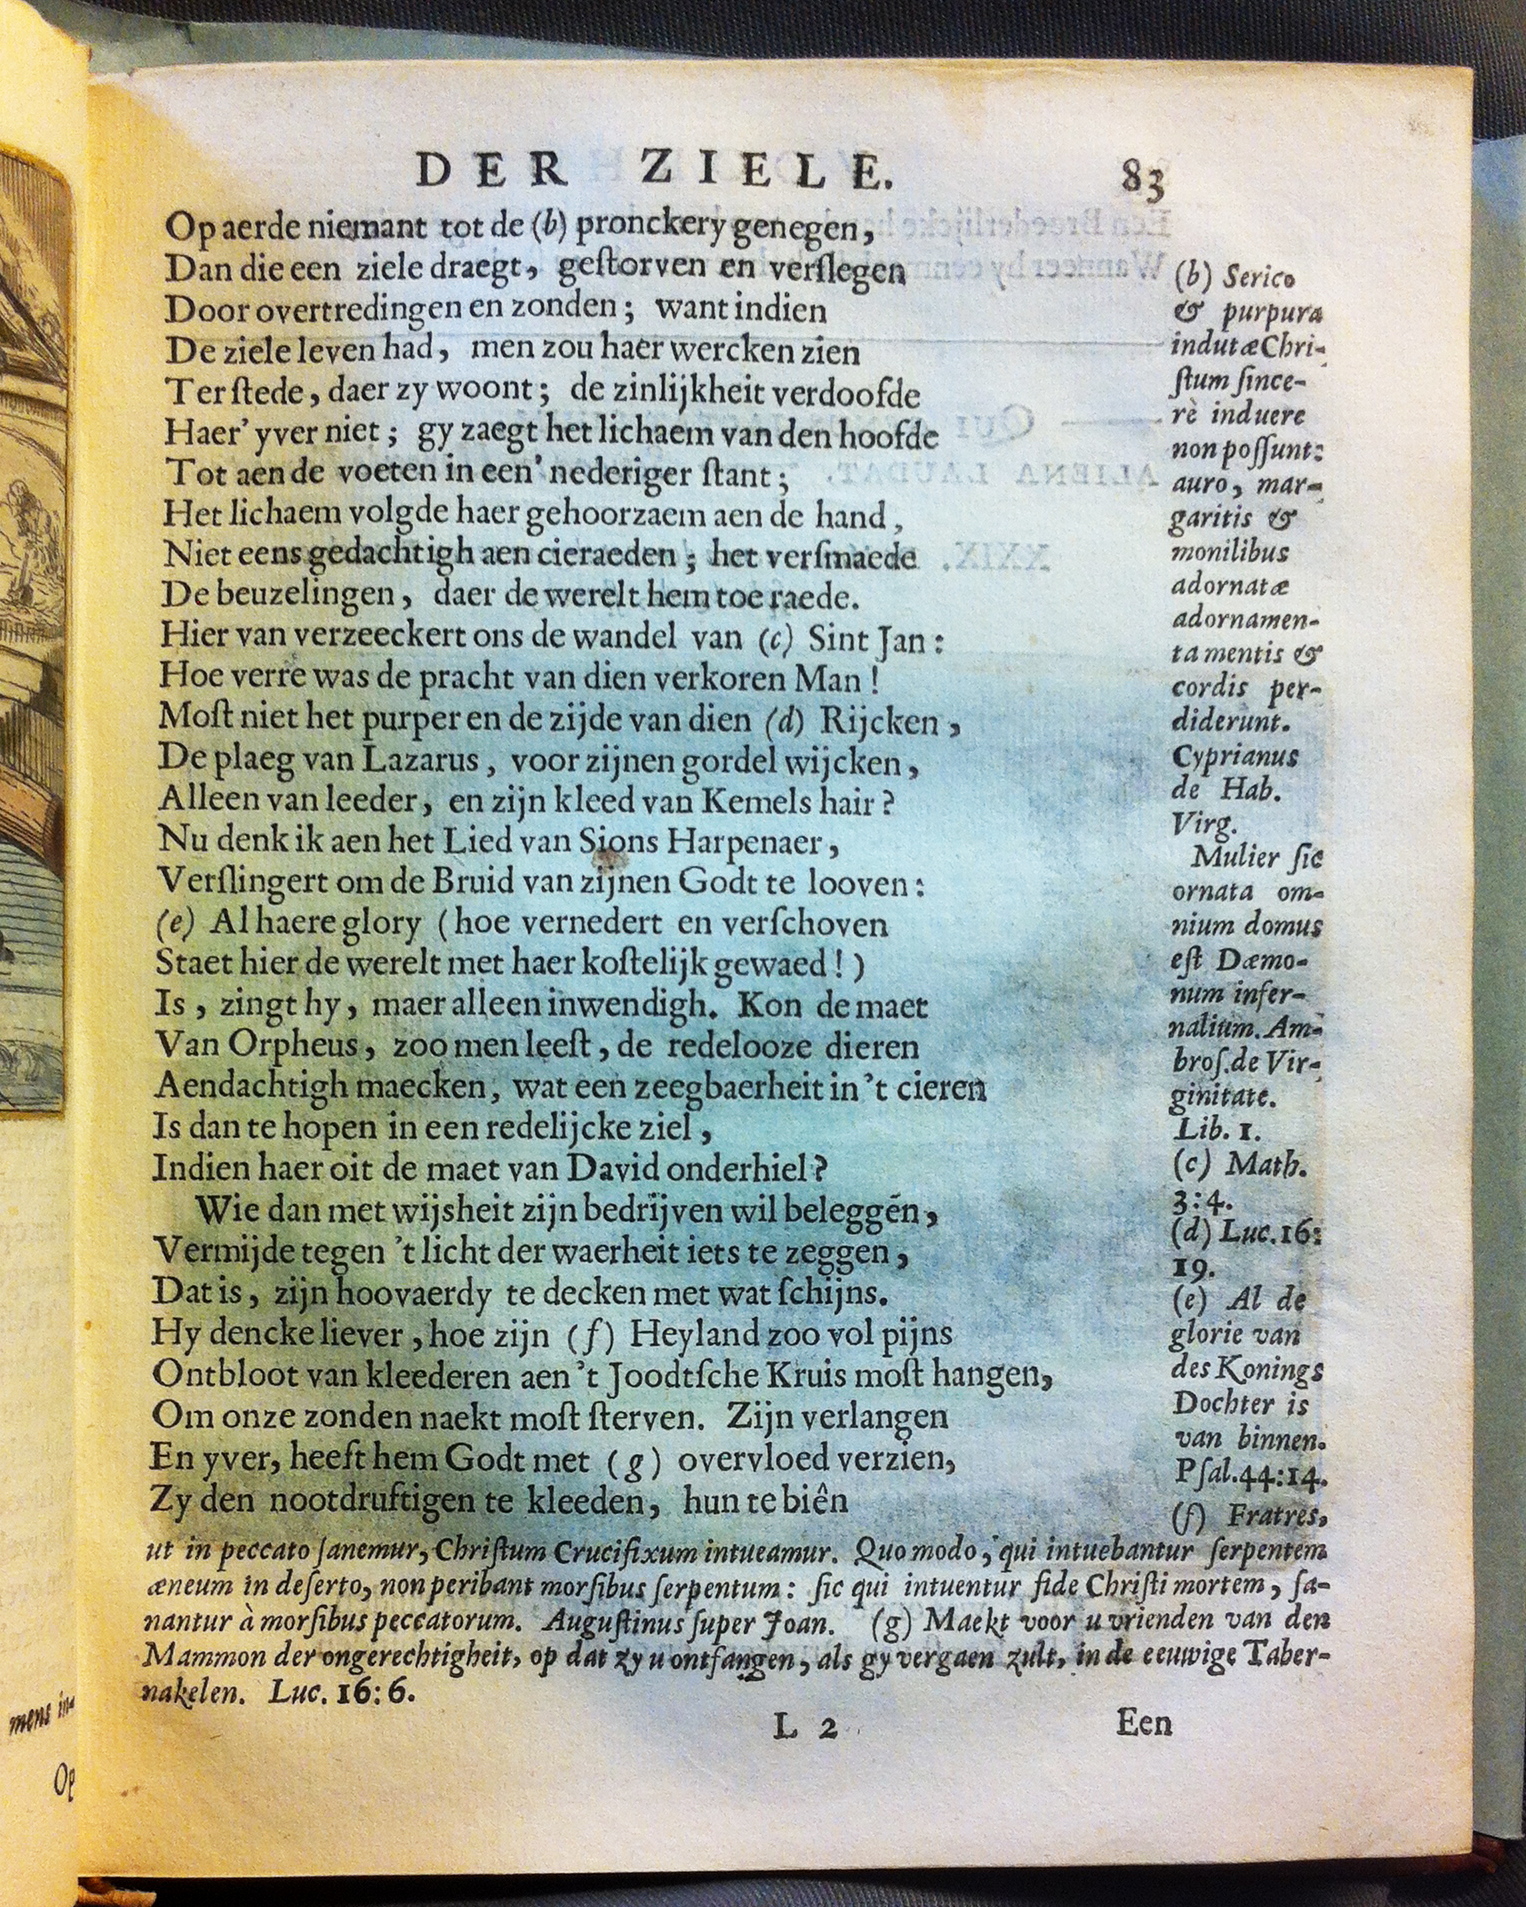 DER ZIELE. 83
Op aerde niemant tot de (b) pronckery genegen,
Dan die een ziele draegt, geſtorven en verſlegen
Door overtredingen en zonden; want indien
De ziele leven had, men zou haer wercken zien
Ter ſtede, daer zy woont; de zinlijkheit verdoofde
Haer' yver niet; gy zaegt het lichaem van den hoofde
Tot aen de voeten in een' nederiger ſtant;
Het lichaem volgde haer gehoorzaem aen de hand,
Niet eens gedachtigh aen cieraeden; het verſmaede
De beuzelingen, daer de werelt hem toe raede.
Hier van verzeeckert ons de wandel van (c) Sint Jan:
Hoe verre was de pracht van dien verkoren Man!
Moſt niet het purper en de zijde van dien (d) Rijcken,
De plaeg van Lazarus, voor zijnen gordel wijcken,
Alleen van leeder, en zijn kleed van Kemels hair?
Nu denk ik aen het Lied van Sions Harpenaer,
Verſlingert om de Bruid van zijnen Godt te looven:
(e) Al haere glory (hoe vernedert en verſchoven
Staet hier de werelt met haer koſtelijk gewaed!)
Is, zingt hy, maer alleen inwendigh. Kon de maet
Van Orpheus, zoo men leeſt, de redelooze dieren
Aendachtigh maecken, wat een zeegbaerheit in 't cieren
Is dan te hopen in een redelijcke ziel,
Indien haer oit de maet van David onderhiel?
Wie dan met wijsheit zijn bedrijven wil beleggēn,
Vermijde tegen 't licht der waerheit iets te zeggen,
Dat is, zijn hoovaerdy te decken met wat ſchijns.
Hy dencke liever, hoe zijn (f) Heyland zoo vol pijns
Ontbloot van kleederen aen 't Joodtſche Kruis moſt hangen,
Om onze zonden naekt moſt ſterven. Zijn verlangen
En yver, heeft hem Godt met (g) overvloed verzien,
Zy den nootdruftigen te kleeden, hun te biên
(b) Serico
& purpura
indutæ Chri-
ſtum ſince-
rè induere
non poſſunt:
auro, mar-
garitis &
monilibus
adornatæ
adornamen-
ta mentis &
cordis per-
diderunt.
Cyprianus
de Hab.
Virg.
Mulier ſic
ornata om-
nium domus
eſt Dæmo-
num infer-
nalium. Am-
broſ. de Vir-
ginitate.
Lib. 1.
(c) Math.
3:4.
(d) Luc. 16:
19.
(e) Al de
glorie van
des Konings
Dochter is
van binnen.
Pſal. 44:14.
(f) Fratres,
ut in peccato ſanemur, Chriſtum Crucifixum intueamur. Quo modo, qui intuebantur ſerpentem
æneum in deſerto, non peribant morſibus ſerpentum: ſic qui intuentur fide Chriſti mortem, ſa-
nantur à morſibus peccatorum. Auguſtinus ſuper Joan. (g) Maekt voor u vrienden van den
Mammon der ongerechtigheit, op dat zy u ontfangen, als gy vergaen zult, in de eeuwige Taber-
nakelen. Luc. 16:6.
L 2 Een
mens in-
Op